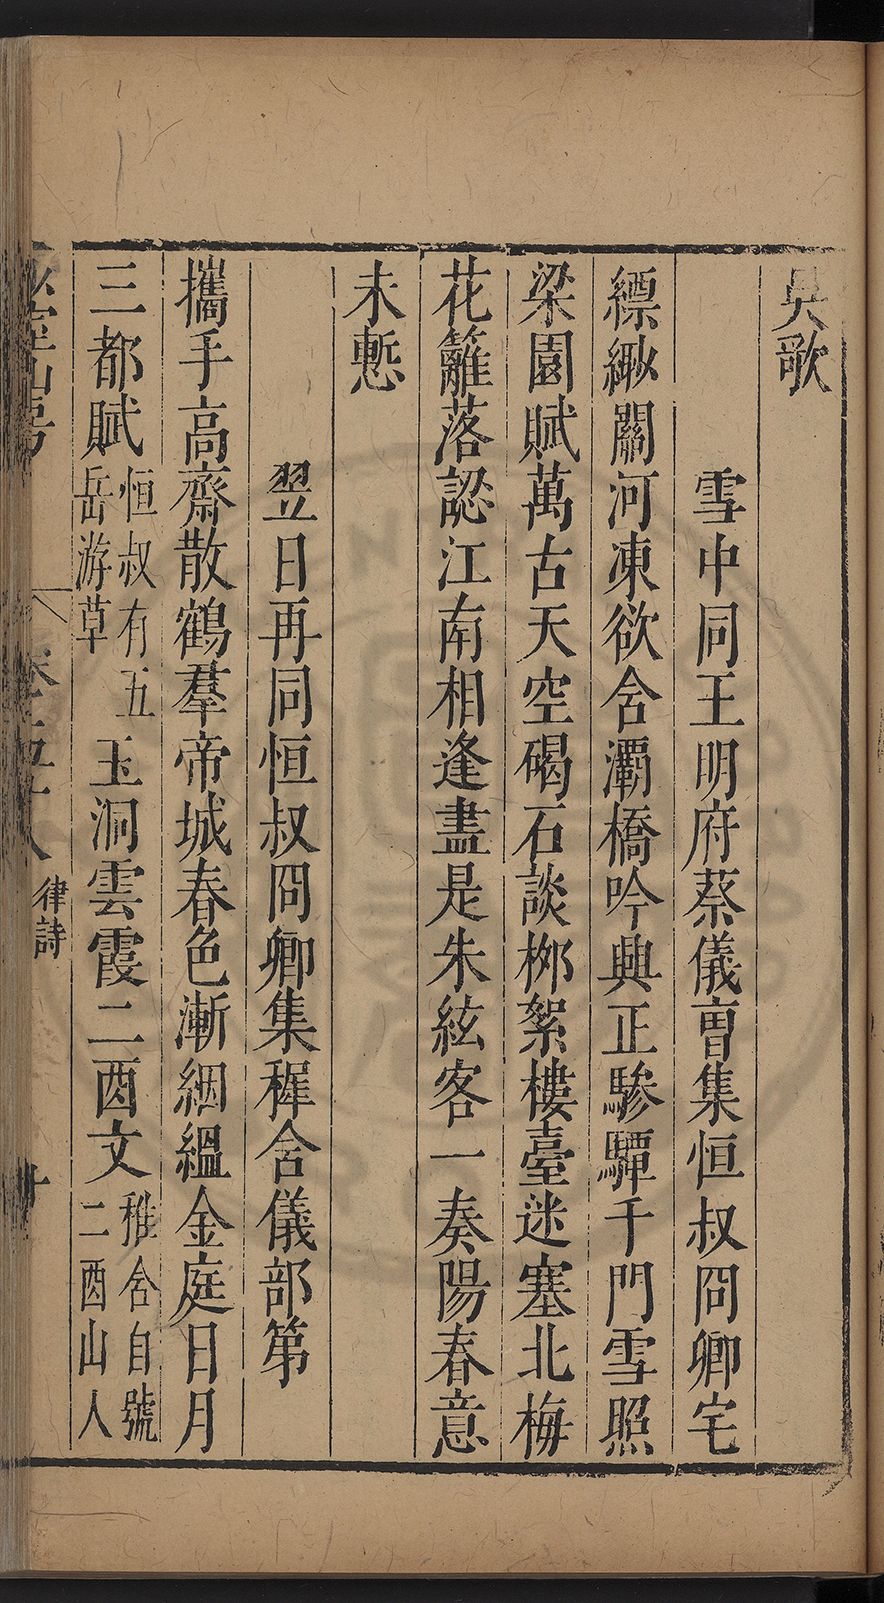 吴歌
雪中同王明府蔡儀曺集恒叔冏卿宅
縹緲關河凍欲含灞橋吟興正驂驔千門雪照
梁園賦萬古天空碣石談桞絮樓臺迷塞北梅
花籬落認江南相逢盡是朱絃客一奏陽春意
未慙
翌日再同恒叔冏卿集穉含儀部第
攜手高齋散鶴羣帝城春色漸絪緼金庭日月
三都賦恒叔有五岳游草玉洞雲霞二酉文稚含自號二酉山人
律詩